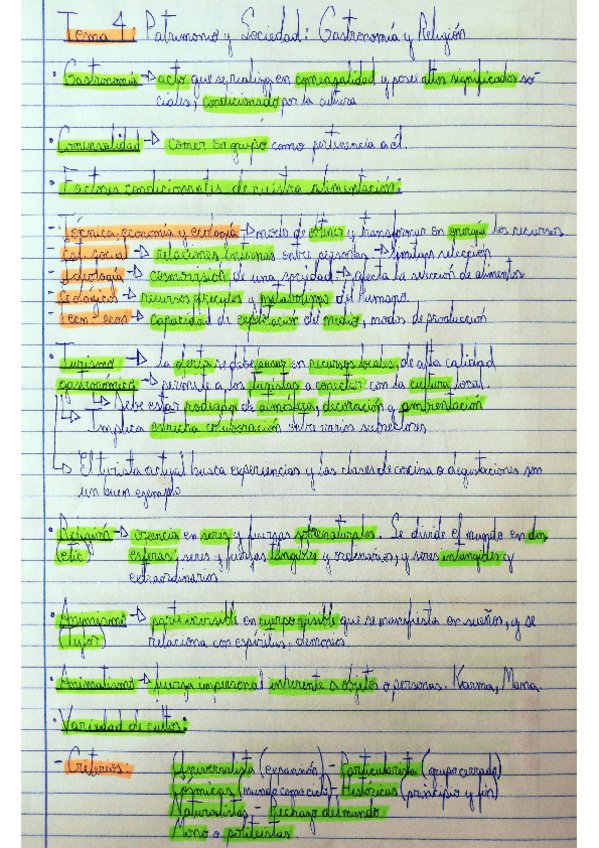 Tema 4. Patrimonio y Sociedad: Gastronomía y Religión
· Gastronomía → acto que se realiza en comensalidad y posee altos significados so-
ciales, condicionado por la cultura
· Comensalidad → comer en grupo como pertenencia a él.
· Factores condicionantes de nuestra alimentación:
- Técnica, economía y ecología → modo de obtener y transformar en energía los recursos
- Cat. social → relaciones internas entre personas → selección
- Ideología → cosmovisión de una sociedad → afecta la selección de alimentos
- Ecológicos → recursos y metabolismo del humano
- Tecn-econ → capacidad de explotación del medio, modos de producción
· Turismo → La oferta se debe basar en recursos locales, de alta calidad
gastronómico → permite a los turistas a conectar con la cultura local.
→ Debe estar de atmósfera, decoración y ambientación
→ Implica estrecha colaboración entre varios subsectores
→ El turista actual busca experiencias y las clases de cocina o degustaciones son
un buen ejemplo
· Religión → creencia en seres y fuerzas sobrenaturales. Se divide el mundo en dos
(etic) esferas, seres y fuerzas tangibles y ordinarios, y seres intangibles y
extraordinarios
· Animismo → parte invisible en cuerpo visible que se manifiesta en sueños, y se
(Tylor) relaciona con espíritus, demonios
· Animatismo → fuerza impersonal inherente a objetos o personas. Karma, Mana.
· Variedad de cultos:
- Criterios Universalista (expansión) - Particularista (grupo cerrado)
Cósmicas (mundo como ciclo) - Históricas (principio y fin)
Naturalistas - Rechazo del mundo
Mono o politeístas.